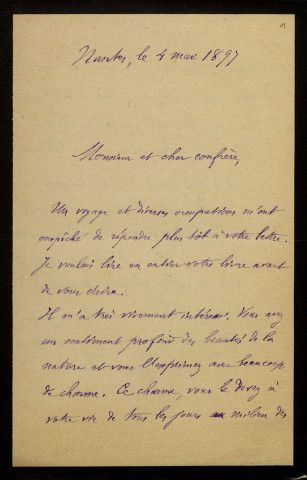 1
Nantes, le 4 mai 1897
Monsieur et cher confrère,
Un voyage et diverses occupations m'ont
empêché de répondre plus tôt à votre lettre.
Je voulais lire en entier votre livre avant
de vous écrire.
Il m'a très vivement intéressé. Vous avez
un sentiment profond des beautés de la
nature et vous l'exprimez avec beaucoup
de charme. Ce charme, vous le devez à
votre vie de tous les jours au milieu des